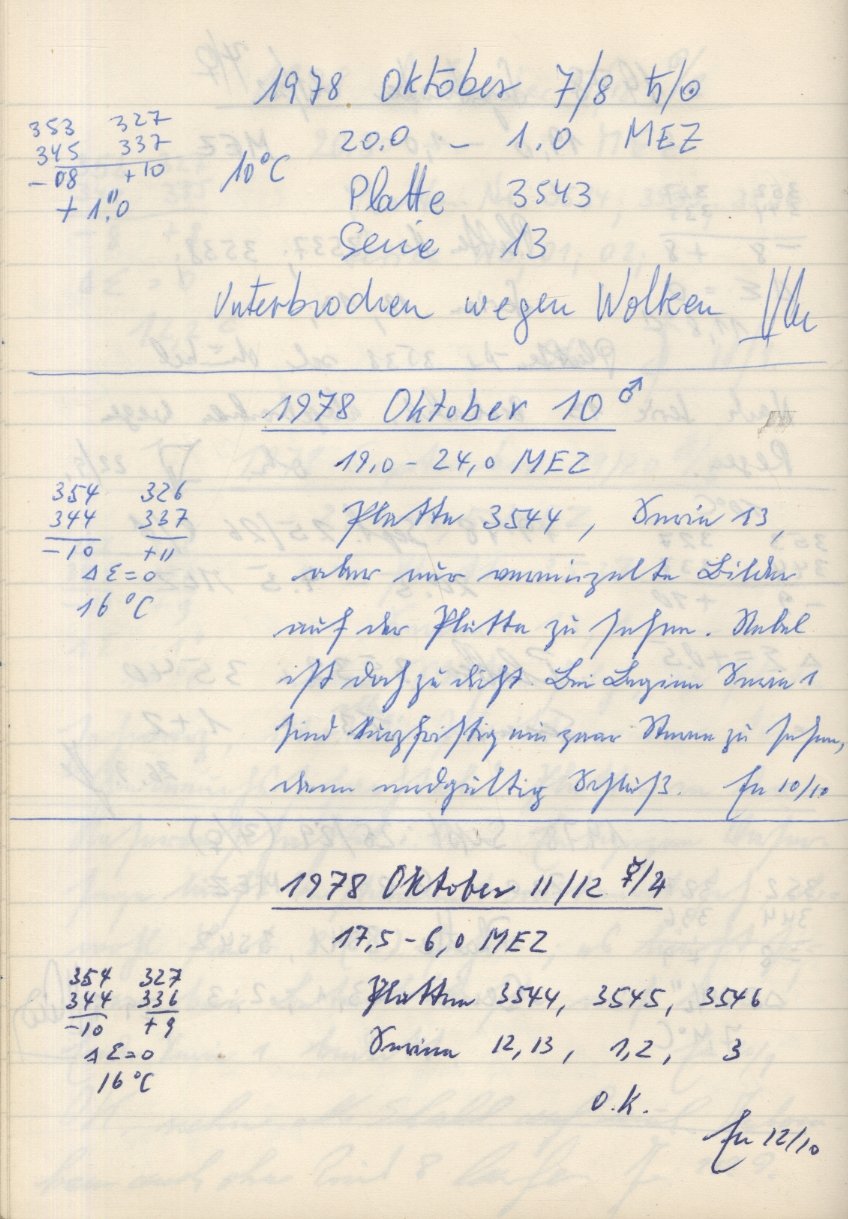 1978 Oktober 7/8 ♄/☉
353 327
345 337
-08 +10
+ 1."0
10°C
20.0 – 1.0 MEZ
Platte 3543
Serie 13
Unterbrochen wegen Wolken
1978 Oktober 10 ♂
19,0 – 24,0 MEZ
354 326
344 337
-10 +11
ΔΣ=0
16 °C
Platte 3544, Serie 13,
aber nur vereinzelte Bilder
auf der Platte zu sehen. Nebel
ist doch zu dicht. Bei Beginn Serie 1
sind kurzfristig ein paar Sterne zu sehen,
dann endgültig Schluß. 10/10
1978 Oktober 11/12 ☿/♃
17,5 – 6,0 MEZ
354 327
344 336
-10 +9
ΔΣ=0
16 °C
Platten 3544, 3545, 3546
Serien 12,13, 1,2, 3
O.K.
12/10